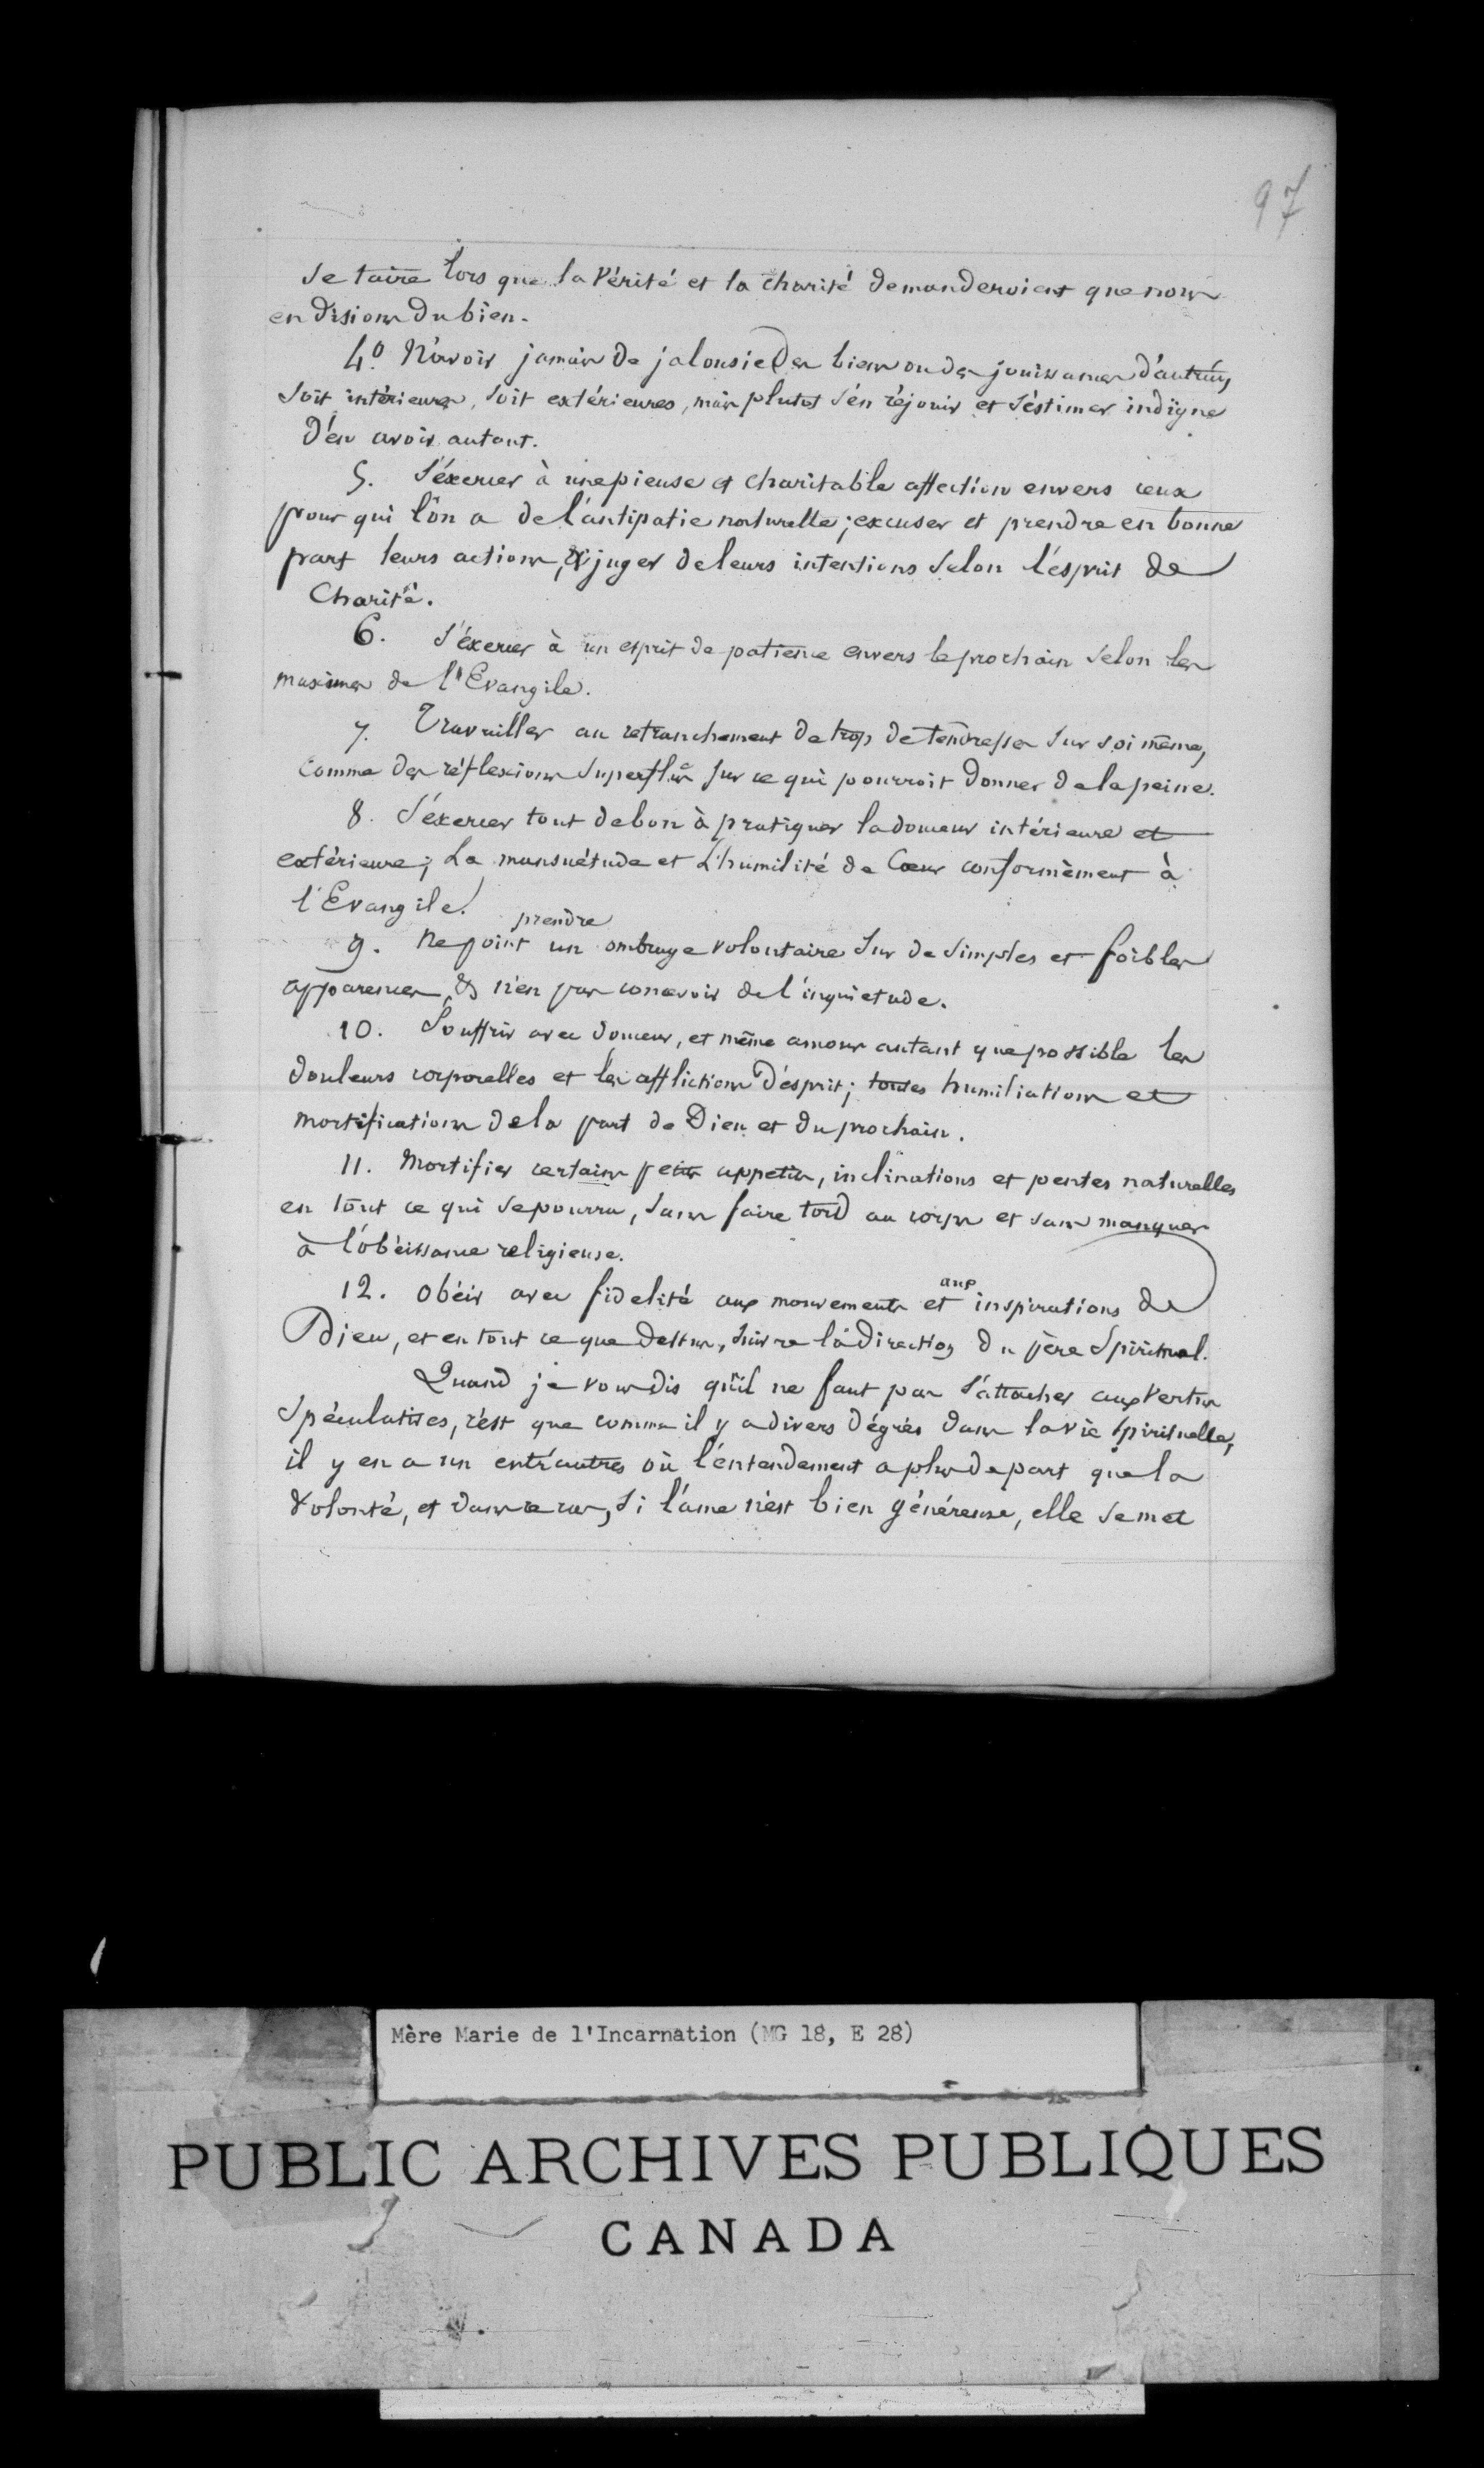 97
se taire lors que la Vérité et la charité demanderoient que nous
en disions du bien.
4.º N'avoir jamais de jalousie des biens ou des jouissances d'autruy,
soit intérieures, soit extérieures, mais plutot s'én réjouir et s'éstimer indigne
d'én avoir autant.
5. S'éxercer à une pieuse et charitable affection envers ceux
pour qui l'ón a de l'antipatie naturelle; excuser et prendre en bonne
part leurs actions, & juger de leurs intentions selon l'ésprit de
Charité.
6. S'éxercer à un esprit de patience envers le prochain selon les
maximes de l'Evangile.
7. Travailler au retranchement de trop de tendresses sur soi même,
comme des réflexions superflues sur ce qui pourroit donner de la peine.
8. S'éxercer tout de bon à pratiquer la douceur intérieure et
extérieure; La mansuétude et L'humilité de Cœur conformément à
l'Evangile.
prendre
9. Ne point un ombrage volontaire sur de simples et foibles
apparences, & n'en pas concevoir de l'inquietude.
10. Souffrir avec douceur, et même amour autant que possible les
douleurs corporelles et les afflictions d'ésprit; toutes humiliations et
mortifications de la part de Dieu et du prochain.
11. Mortifier certains petits appetits, inclinations et pentes naturelles
en tout ce qui se pourra, sans faire tord au corps et sans manquer
à l'obéissance religieuse.
12. obéir avec fidelité aux mouvements et aux inspirations de
Dieu, et en tout ce que dessus, suivre la direction du père Spirituel.
Quand je vous dis qu'il ne faut pas s'attacher aux Vertus
Spéculatives, c'ést que comme il y a divers dégrés dans la vie spirituelle,
il y en a un entr'autres où l'éntendement a plus de part que la
Volonté, et dans ce cas, si l'ame n'est bien généreuse, elle se met
Mère Marie de l'Incarnation (MG 18, E 28)
PUBLIC ARCHIVES PUBLIQUES
CANADA